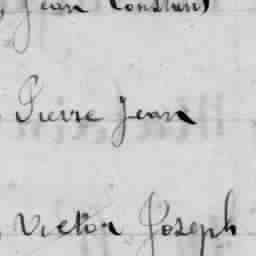 , Jean Constant
, Pierre Jean
, Victor Joseph